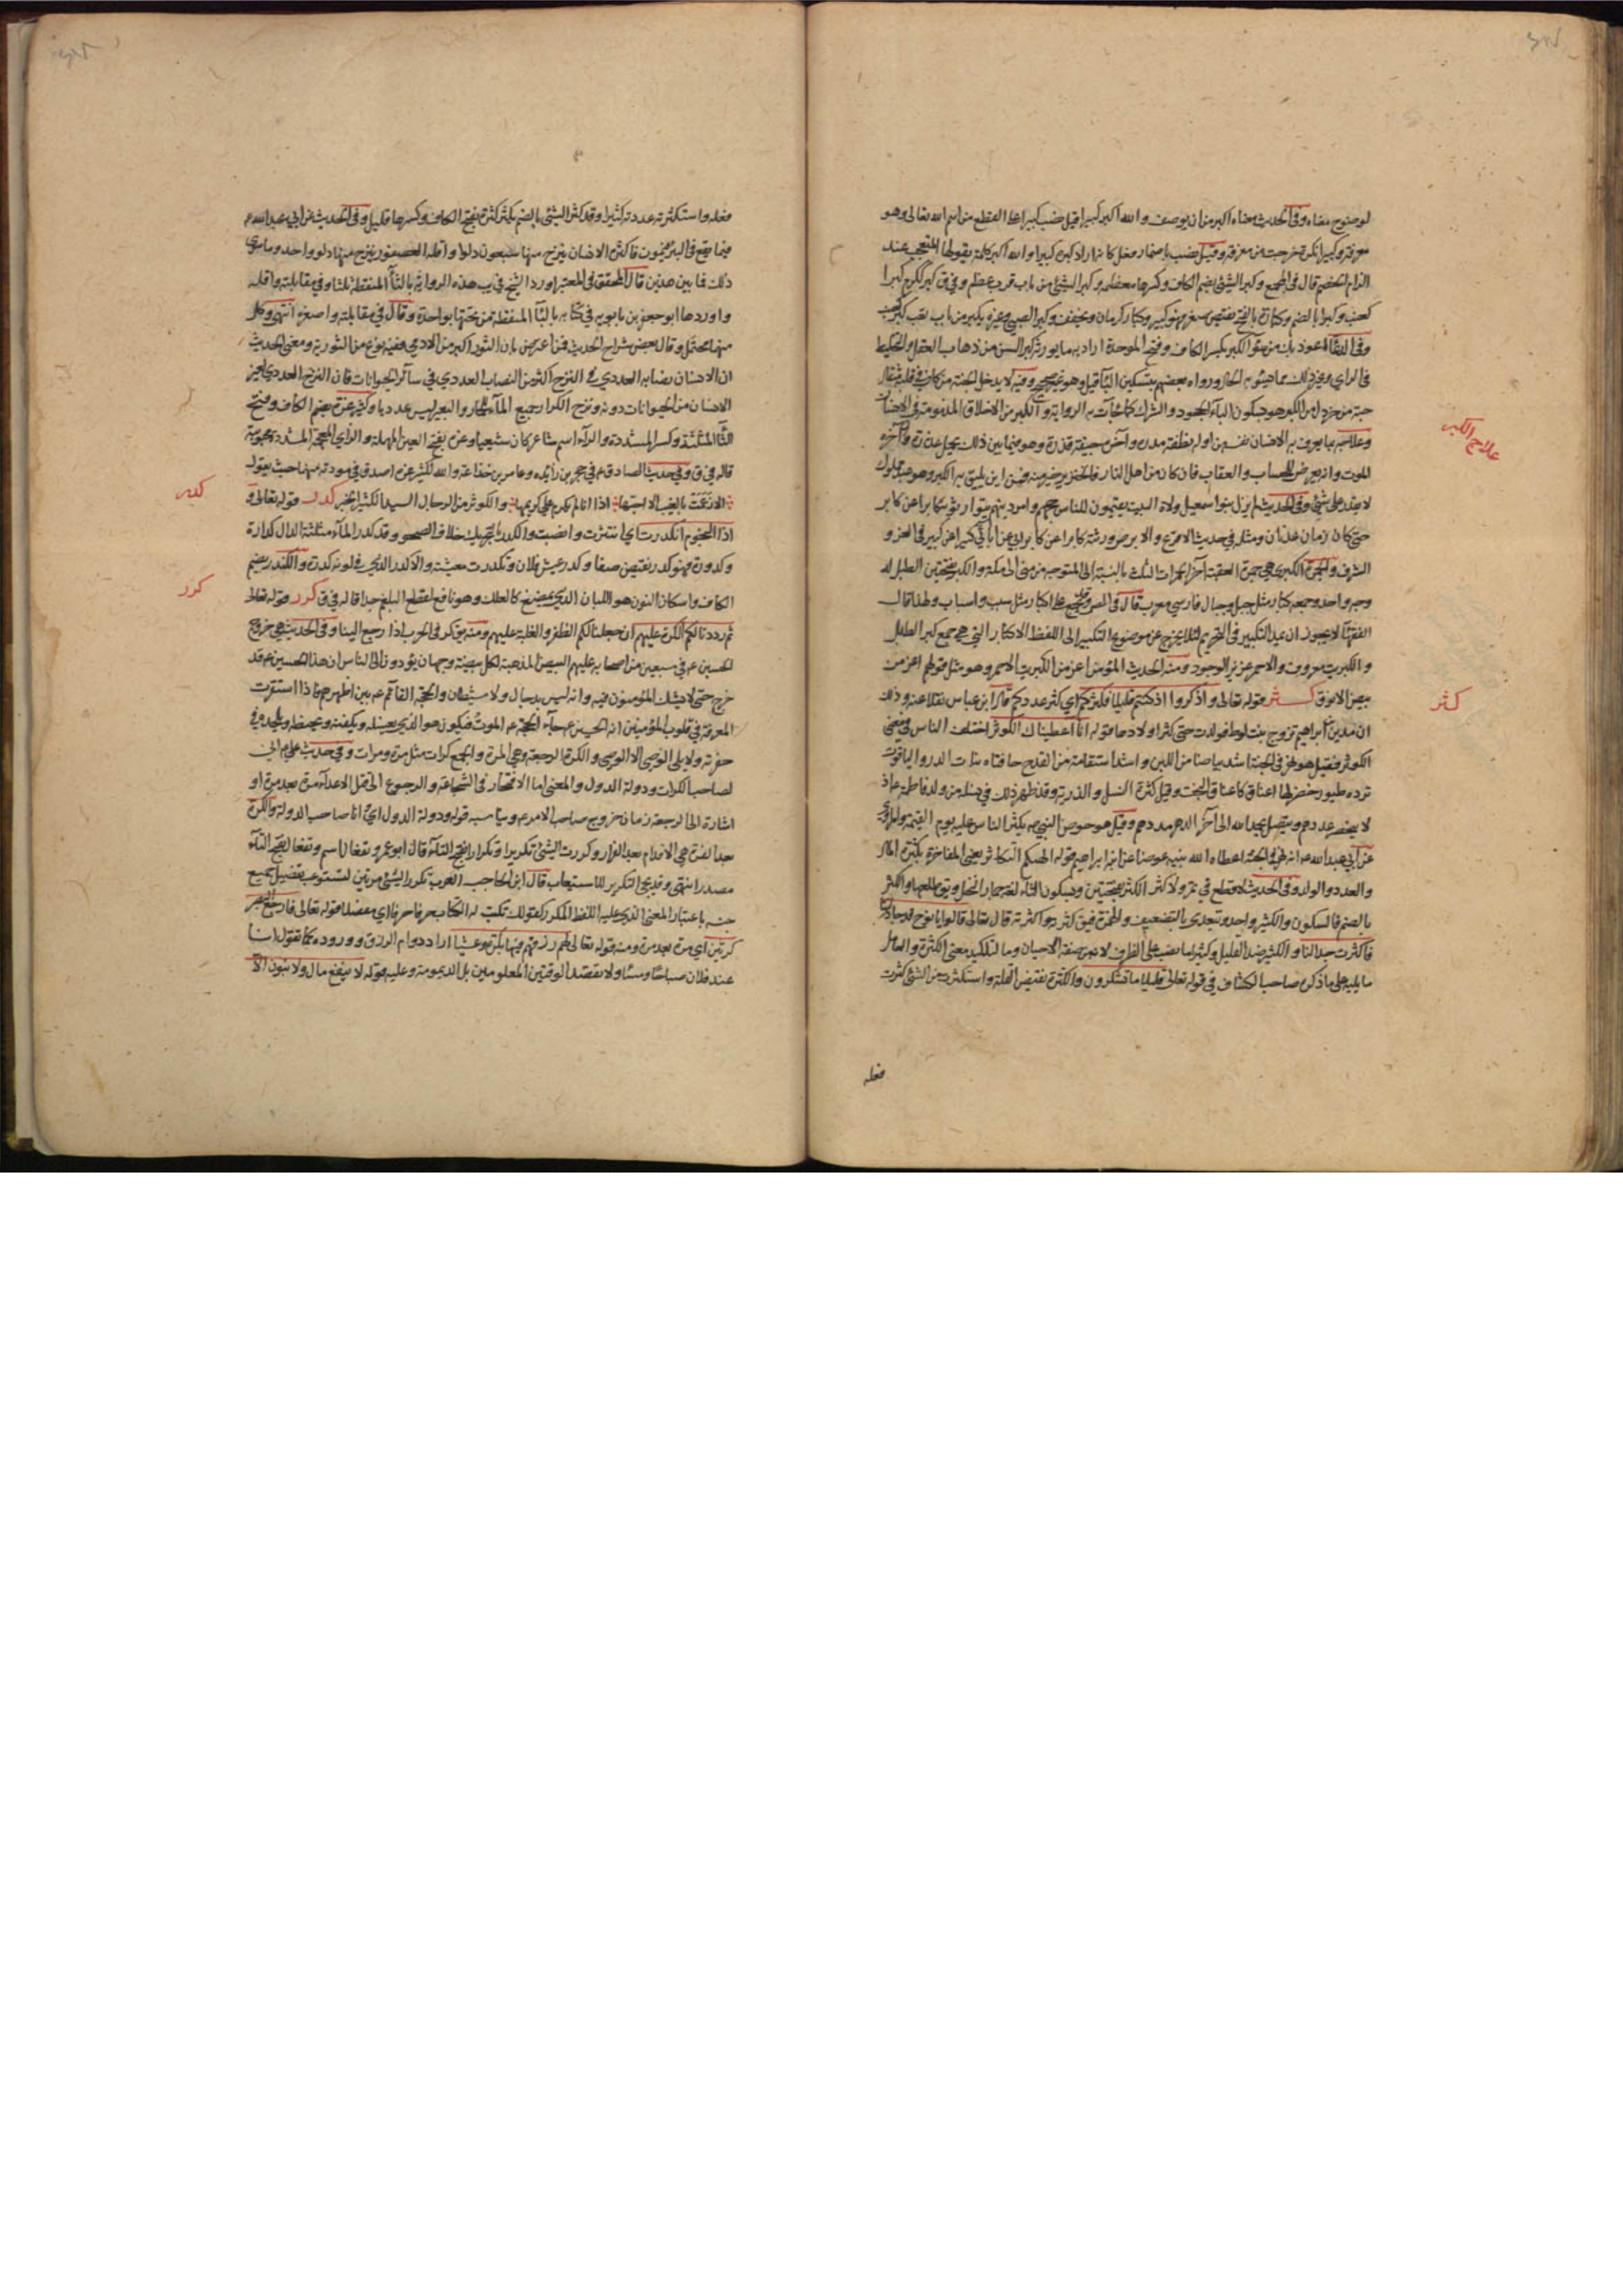 لوضوح معناه وفي الحديث معناه اكبر من ان يوصف والله اكبر كبيرا قيل نصب كبيرا على القطع من اسم الله تعالى وهو
معرفة وكبيرا نكرة خرجت من معرفة وقيل نصب باضمار فعل كانه اراد اكبره كبيرا والله اكبر كلمة يقولها المتعجب عند
الزام الخصم قال في المجمع وكبر الشئ بضم الكاف وكسرها معظمه وكبر الشئ من باب قرب عظم وفي ق كبر ككرم كبرا
كعنب وكبرا بالضم وكبارة بالفتح نقيض صغر فهو كبير وكبار كرمان ويخفف وكبر الصبي وغيره يكبر من باب تعب
وفي الدعاء اعوذ بك من سوء الكبر بكسر الكاف وفتح الموحدة اراد به ما يورثه كبر السن من ذهاب العقل والتخليط
في الراي وغير ذلك مما يسوء به الحال ورواه بعضهم بتسكين الباء قيل وهو غير صحيح وفيه لا يدخل الجنة من كان في قلبه مثقال
حبة من خردل من الكبر هو بسكون الباء الجحود والشرك كما جاءت به الرواية والكبر من الاخلاق المذمومة في الانسان
وعلاجه ما يعرف به الانسان نفسه من اوله نطفة مذرة واخره جيفة قذرة وهو فيما بين ذلك يحمل عذرة وآخره
الموت وانه يعرض للحساب والعقاب فان كان من اهل النار فالخنزير خير منه فمن اين يليق به الكبر وهو عبد مملوك
لا يقدر على شئ وفي الحديث لم يزل بنو اسمعيل ولاة البيت يقيمون للناس حجهم وامر دينهم يتوارثونه كابرا عن كابر
حتى كان زمان عدنان ومثله في حديث الاقرع والابرص ورثته كابرا عن كابر اي عن ابائي كبيرا عن كبير في العز و
الشرف والجمرة الكبرى هي جمرة العقبة آخر الجمرات الثلث بالنسبة الى المتوجه من منى الى مكة والكبر بفتحتين الطبل له
وجه واحد وجمعه كبار مثل جبل وجبال فارسي معرب قال في المص وقد يجمع على اكبار مثل سبب واسباب ولهذا قال
الفقهاء لا يجوز ان يمد التكبير في التحريم لئلا يخرج عن موضوع التكبير الى اللفظ الاكبار التي هي جمع كبر الطبل
والكبريت معروف والاحمر عزيز الوجود ومنه الحديث المؤمن اعز من الكبريت الاحمر وهو مثل قولهم اعز من
بيض الانوق كثر قوله تعالى واذكروا اذ كنتم قليلا فكثركم اي كثر عددكم قال ابن عباس نقلا عنه وذلك
ان مدين بن ابراهيم تزوج بنت لوط فولدت حتى كثر اولادها قوله انا اعطيناك الكوثر اختلف الناس في معنى
الكوثر فقيل هو نهر في الجنة اشد بياضا من اللبن واشد استقامة من القدح حافتاه نبات الدر والياقوت
ترده طيور خضر لها اعناق كاعناق البخت وقيل كثرة النسل والذرية وقد ظهر ذلك في نسله من ولد فاطمة ع اذ
لا ينحصر عددهم ويتصل بحمد الله الى آخر الدهر مددهم وقيل هو حوض النبي ص يكثر الناس عليه يوم القيمة
عن ابي عبد الله ع انه نهر في الجنة اعطاه الله نبيه عوضا عن ابنه ابراهيم قوله الهيكم التكاثر يعني المفاخرة بكثرة المال
والعدد والولد وفي الحديث لا قطع في ثمر ولا كثر الكثر بفتحتين وبسكون الثاء لغة جمار النخل ويقال طلعها والكثر
بالضم فالسكون والكثير واحد ويتعدى بالتضعيف والهمزة فيق كثرته واكثرته قال تعالى قالوا يا نوح قد جادلتنا
فاكثرت جدالنا والكثير ضد القليل وكثيرا ما نصب على الظرف لانه من صفة الاحيان وما لتاكيد معنى الكثرة والعامل
ما يليه على ما ذكره صاحب الكشاف في قوله تعالى قليلا ما تشكرون والكثرة نقيض القلة واستكثرت من الشئ اكثرت
فعله
علاج الكبر
كثر
فعله واستكثرته عددته كثيرا وقد كثر الشئ بالضم يكثر كثرة بفتح الكاف وكسرها قليل وفي الحديث عن ابي عبد الله ع
فيما يقع في البئر فيموت فاكثره الانسان ينزح منها سبعون دلوا واقله العصفور ينزح منها دلو واحد وما سوى
ذلك فيما بين هذين قال المحقق في المعتبر اورد الشيخ في يب هذه الرواية بالثاء المنقطة ثلثا وفي مقابلته واقله
واوردها ابو جعفر بن بابويه في كتابه بالباء المنقطة من تحتها بواحدة وقال في مقابلته واصغره انتهى وكل
منهما محتمل وقال بعض شراح الحديث فمن اعترض بان الثور اكبر من الادمي ففيه نوع من الثورية ومعنى الحديث
ان الانسان نصابه العددي في النزح اكثر من النصاب العددي في سائر الحيوانات فان النزح العددي لغير
الانسان من الحيوانات دونه ونزح الكر او جميع الماء للحمار والبعير ليس عدديا وكثير عزة بضم الكاف وفتح
الثاء المثلثة وكسر المشددة والراء اسم شاعر كان شيعيا وعزة بفتح العين المهملة والزاي المعجمة المشددة محبوبته
قاله في ق وفي حديث الصادق ع في حجر بن زائدة وعامر بن جذاعة والله لكثير عزة اصدق في مودته منهما حيث يقول
الا زعمت بالغيب الا احبها اذا انا لم يكرم علي كريمها والكوثر من الرجال السيد الكثير الخير كدر قوله تعالى و
اذا النجوم انكدرت اي انتثرت وانصبت والكدر بالتحريك خلاف الصحو وقد كدر الماء مثلثة الدال كدارة
وكدورة فهو كدر نقيض صفا وكدر عيش فلان وتكدرت معيشته والاكدر الذي في لونه كدرة والكندر بضم
الكاف واسكان النون هو اللبان الذي يمضغ كالعلك وهو نافع لقطع البلغم جدا قاله في ق كرر قوله تعالى
ثم رددنا لكم الكرة عليهم اي جعلنا لكم الظفر والغلبة عليهم ومنه يق كر في الحرب اذا رجع الينا وفي الحديث هي خروج
الحسين ع في سبعين من اصحابه عليهم البيض المذهبة لكل بيضة وجهان يؤدون الى الناس ان هذا الحسين ع قد
خرج حتى لا يشك المؤمنون فيه وانه ليس بدجال ولا شيطان والحجة القائم ع بين اظهرهم فاذا استقرت
المعرفة في قلوب المؤمنين انه الحسين ع جاء الحجة ع الموت فيكون هو الذي يغسله ويكفنه ويحنطه ويلحده في
حفرته ولا يلي الوصي الا الوصي والكرة الرجعة وهي المرة والجمع كرات مثل مرة ومرات وفي حديث علي ع اني
لصاحب الكرات ودولة الدول والمعنى اما الافتخار في الشجاعة والرجوع الى قتل الاعداء مرة بعد مرة او
اشارة الى الرجعة زمان خروج صاحب الامر ع ويناسبه قوله ودولة الدول اي انا صاحب الدولة والكرة
بعد الفرة هي الاقدام بعد الفرار وكررت الشئ تكريرا وتكرارا بفتح التاء قال ابو عمرو تفعال اسم وتفعال بفتح التاء
مصدر انتهى وقد يجئ التكرير للاستيعاب قال ابن الحاجب العرب تكرر الشئ مرتين لتستوعب تفصيل جميع
جنسه باعتبار المعنى الذي عليه اللفظ المكرر كقولك تكتب له الكتاب حرفا حرفا اي مفصلا قوله تعالى فارجع البصر
كرتين اي مرة بعد مرة ومنه قوله تعالى لهم رزقهم فيها بكرة وعشيا اراد دوام الرزق ووروده كما تقول انا
عند فلان صباحا ومساء ولا تقصد الوقتين المعلومين بل الديمومة وعليه قوله لا ينفع مال ولا بنون الا
كدر
كرر